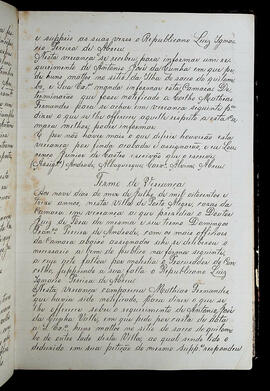 e suppriu as suas vezes o Republicano Luiz Ignacio Pereira de Abreu
Nesta vereança se recebeu para informar um requerimento de Antonio José da Cunha em que pede huns mattos no sitio da Ilha do sacco do quilombo,
e Sua Exc.ª manda informar esta Camara. Determinarão que
notificado o Coelho Mathias
Fernandes para se achar em vereança seguinte
dizer o que se lhe offerecer aquelle respeito a esta
maior melhor, poder informar.
E por não haver mais a que diferir houverão esta
vereança por finda acabada e assignarão, e eu Lourenço Junior de Castro escrivão que o escrevi
Andrade, Albuquerque, Abreu
Termo de Vereança
Aos nove dias do mez de Julho de mil oitocentos e
treze annos, nesta Villa de Porto Alegre, e casas da
Camara em vereança a que presidiu o Doutor
Juiz de Fora da mesma e seu termo Domingos
Pereira de Andrade, com os mais officiaes
da Camara abaixo assignados ahi se deliberou o
necessario a bem do publico na forma seguinte
e cujo acto faltou por molestia o Procurador do Concelho, suppriu a sua falta o Republicano Luiz
Ignacio Pereira de Abreu
Nesta vereança compareceu Mathias Fernandes
que havia sido notificado, para dizer o que se
lhe offerecer sobre o requerimento de Antonio José
da Cunha Velho, com que pedio por carta de data
a S. Ex.ª huns mattos no sitio do sacco do quilombo
do outro lado desta Villa, ao qual sendo lido o
deduzido em sua petição do mesmo Supp.te respondeu